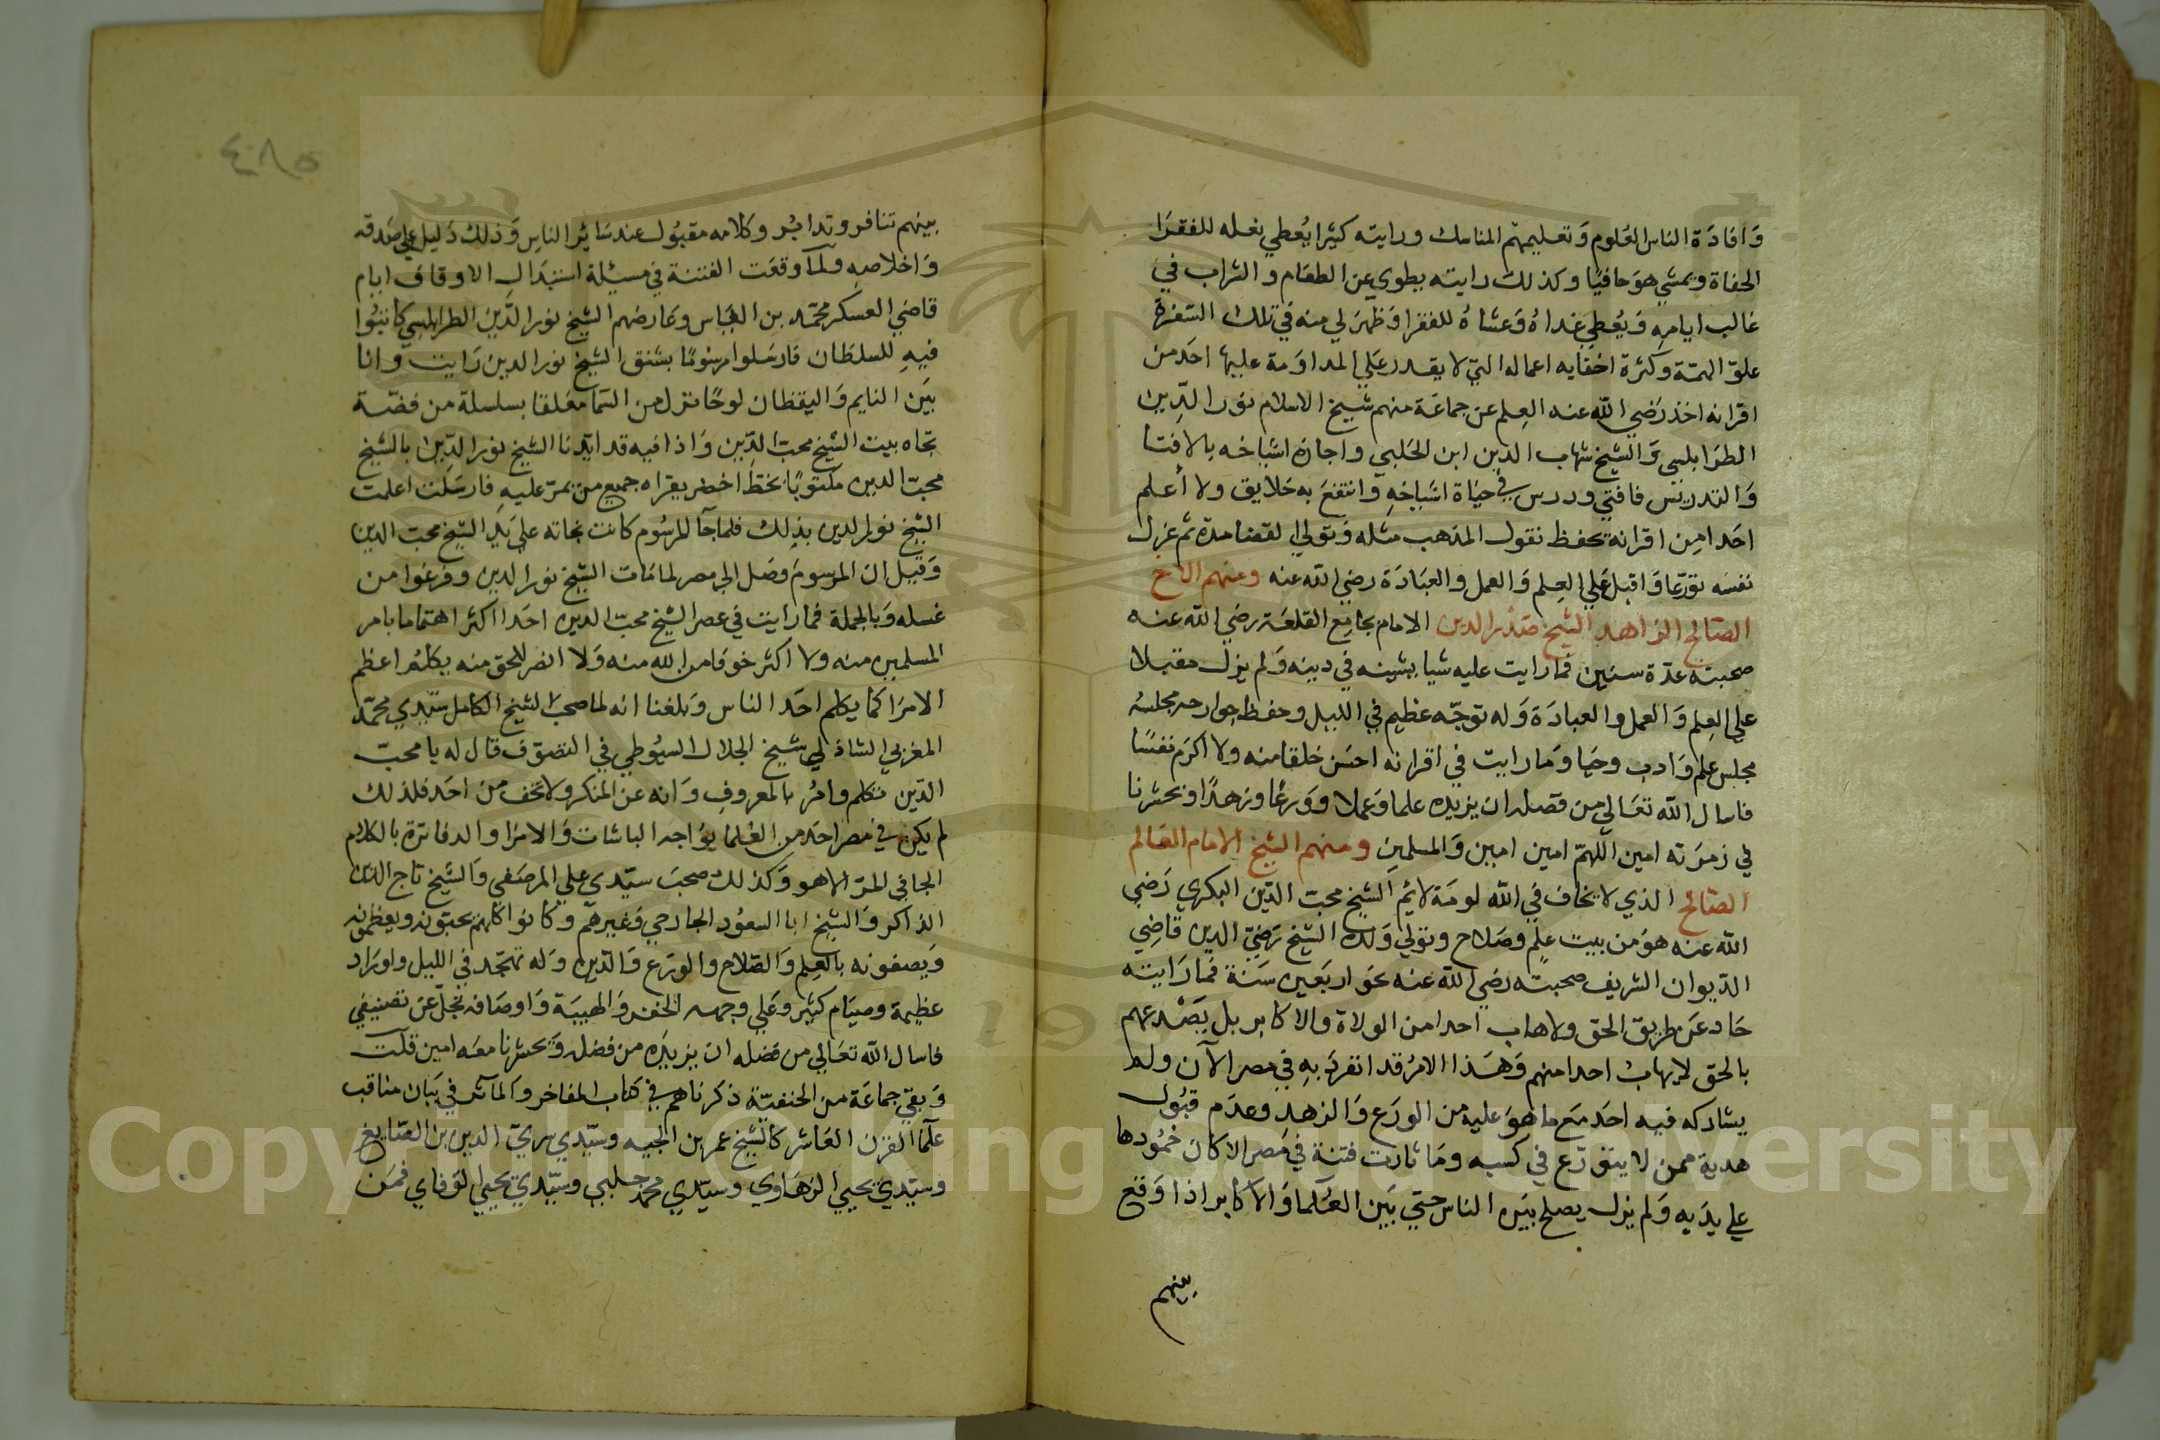 وافادة الناس العلوم وتعليمهم المناسك ورايته كثيرا يعطي نعله للفقرا
الحفاة ويمشي هو حافيا وكذلك رايته يطوي عن الطعام والشراب في
غالب ايامه ويعطي غداه وعشاه للفقرا وظهر لي منه في تلك السفرة
علو الهمة وكثرة اخفايه اعماله التي لا يقدر علي المداومة عليها احد من
اقرانه اخذ رضي الله عنه العلم عن جماعة منهم شيخ الاسلام نور الدين
الطرابلسي والشيخ شهاب الدين ابن الحلبي واجازه اشياخه بالافتا
والتدريس فافتي ودرس في حياة اشياخه وانتفع به خلايق ولا أعلم
احدا من اقرانه يحفظ نقول المذهب مثله وتولي القضا مدة ثم عزل
نفسه تورعا واقبل علي العلم والعمل والعبادة رضي الله عنه ومنهم الاخ
الصالح الزاهد الشيخ صدر الدين الامام بجامع القلعة رضي الله عنه
صحبته عدة سنين فما رايت عليه شيا يشينه في دينه ولم يزل مقبلا
علي العلم والعمل والعبادة وله توجه عظيم في الليل وحفظ جوارحه مجلسه
مجلس علم وادب وحيا وما رايت في اقرانه احسن خلقا منه ولا اكرم نفسا
فاسال الله تعالي من فضله ان يزيده علما وعملا وورعا وزهدا ويحشرنا
في زمرته امين اللهم امين امين والمسلمين ومنهم الشيخ الامام العالم
الصالح الذي لا يخاف في الله لومة لائم الشيخ محب الدين البكري رضي
الله عنه هو من بيت علم وصلاح وتولي ولده الشيخ رضي الدين قاضي
الديوان الشريف صحبته رضي الله عنه نحو اربعين سنة فما رايته
حاد عن طريق الحق ولا هاب احدا من الولاة والاكابر بل يصدعهم
بالحق لا يهاب احدا منهم وهذا الامر قد انفرد به في مصر الآن ولم
يشاركه فيه احد مع ما هو عليه من الورع والزهد وعدم قبول
هدية ممن لا يتورع في كسبه وما ثارت فتنة في مصر الا كان خمودها
علي يديه ولم يزل يصلح بين الناس حتي بين العلما والاكابر اذا وقع
بينهم
بينهم تنافر وتدابر وكلامه مقبول عند سائر الناس وذلك دليل علي صدقه
واخلاصه ولما وقعت الفتنة في مسئلة استبدال الاوقاف ايام
قاضي العسكر محمد بن الياس وعارضهم الشيخ نور الدين الطرابلسي كاتبوا
فيه للسلطان فارسلوا مرسوما بشنق الشيخ نور الدين رايت وانا
بين النايم واليقظان لوحا نزل من السما معلقا بسلسلة من فضة
تجاه بيت الشيخ محب الدين واذا فيه قد ايدنا الشيخ نور الدين بالشيخ
محب الدين مكتوبا بخط اخضر يقراه جميع من يمر عليه فارسلت اعلمت
الشيخ نور الدين بذلك فلما جا المرسوم كانت نجاته علي يد الشيخ محب الدين
وقيل ان المرسوم وصل الي مصر لما مات الشيخ نور الدين وفرغوا من
غسله وبالجملة فما رايت في عصر الشيخ محب الدين احدا اكثر اهتماما بامر
المسلمين منه ولا اكثر خوفا من الله منه ولا انصر للحق منه يكلم اعظم
الامرا كما يكلم احد الناس وبلغنا انه لما صحب الشيخ الكامل سيدي محمد
المغربي الشاذلي شيخ الجلال السيوطي في التصوف قال له يا محب
الدين تكلم وامر بالمعروف وانه عن المنكر ولا تخف من احد فلذلك
لم يكن في مصر احد من العلما يواجه الباشات والامرا والدفاترة بالكلام
الجافي المر الا هو وكذلك صحب سيدي علي المرصفي والشيخ تاج الدين
الذاكر والشيخ ابا السعود الجارحي وغيرهم وكانوا كلهم يحبونه ويعظمونه
ويصفونه بالعلم والصلاح والورع والدين وله تهجد في الليل واوراد
عظيمة وصيام كثير وعلي وجهه الخفر والهيبة واوصافه تجل عن تصنيفي
فاسال الله تعالي من فضله ان يزيده من فضله ويحشرنا معه امين قلت
وبقي جماعة من الحنفية ذكرناهم في كتاب المفاخر والمآثر في بيان مناقب
علما القرن العاشر كالشيخ عمر بن الجيه وسيدي سري الدين بن الصايغ
وسيدي يحيي الرهاوي وسيدي محمد جلبي وسيدي يحيي الوفاي فمن
Copyright King Saud University